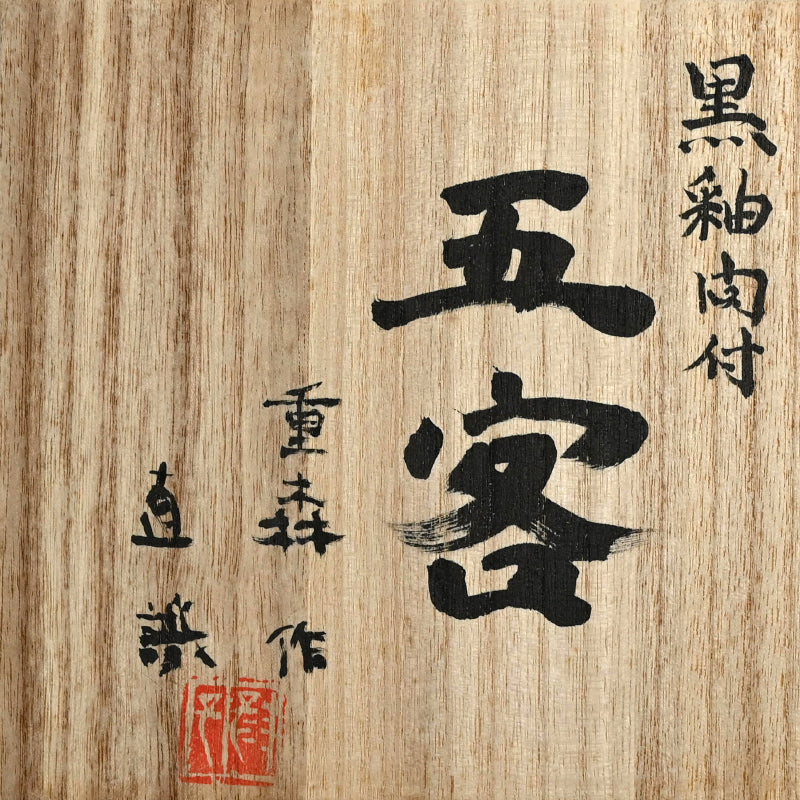 黒釉向付
五客
重森作
直識